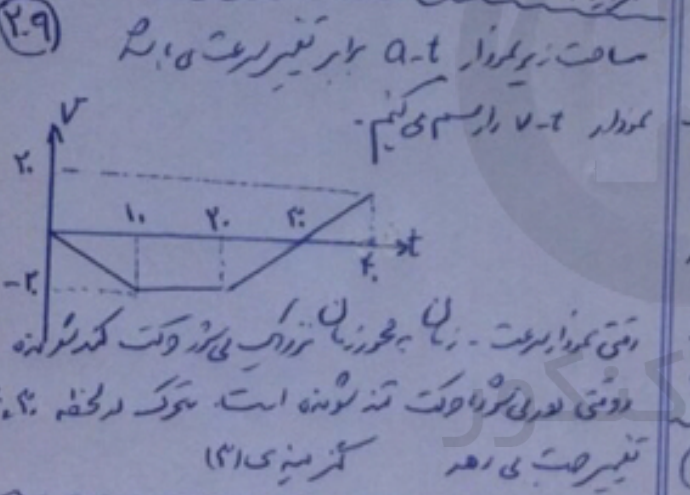 ۲۰۹
مساحت زیر نمودار a-t برابر تغییر سرعت می باشد
نمودار v-t را رسم می کنیم.
v
۲۰
۱۰ ۲۰ ۳۰
t
۴۰
-۲۰
وقتی نمودار سرعت - زمان به محور زمان نزدیک می شود حرکت کند شونده
و وقتی دور می شود حرکت تند شونده است. متحرک در لحظه ۳۰
تغییر جهت می دهد گزینه ی (۳)
کنکور